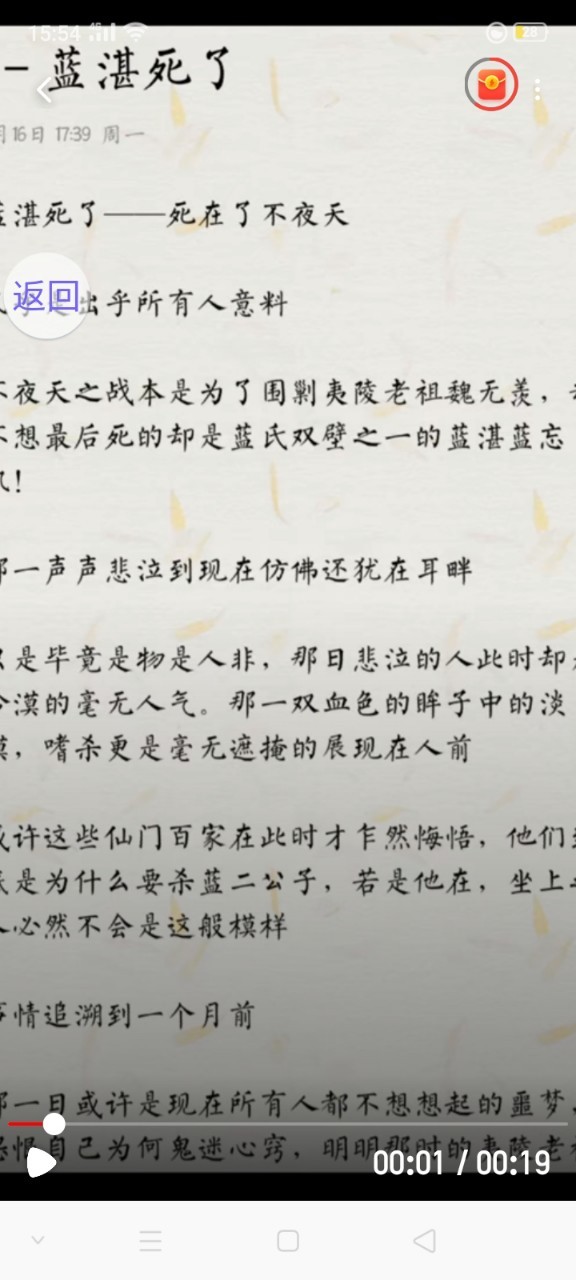 15:54
28
－蓝湛死了
月16日 17:39 周一
蓝湛死了——死在了不夜天
返回
出乎所有人意料
不夜天之战本是为了围剿夷陵老祖魏无羡，
不想最后死的却是蓝氏双壁之一的蓝湛蓝忘
机！
那一声声悲泣到现在仿佛还犹在耳畔
只是毕竟是物是人非，那日悲泣的人此时却
冷漠的毫无人气。那一双血色的眸子中的淡
漠，嗜杀更是毫无遮掩的展现在人前
或许这些仙门百家在此时才乍然悔悟，他们
是为什么要杀蓝二公子，若是他在，坐上
人必然不会是这般模样
事情追溯到一个月前
那一日或许是现在所有人都不想想起的噩梦，
恨自己为何鬼迷心窍，明明那时的夷陵老
00:01 / 00:19